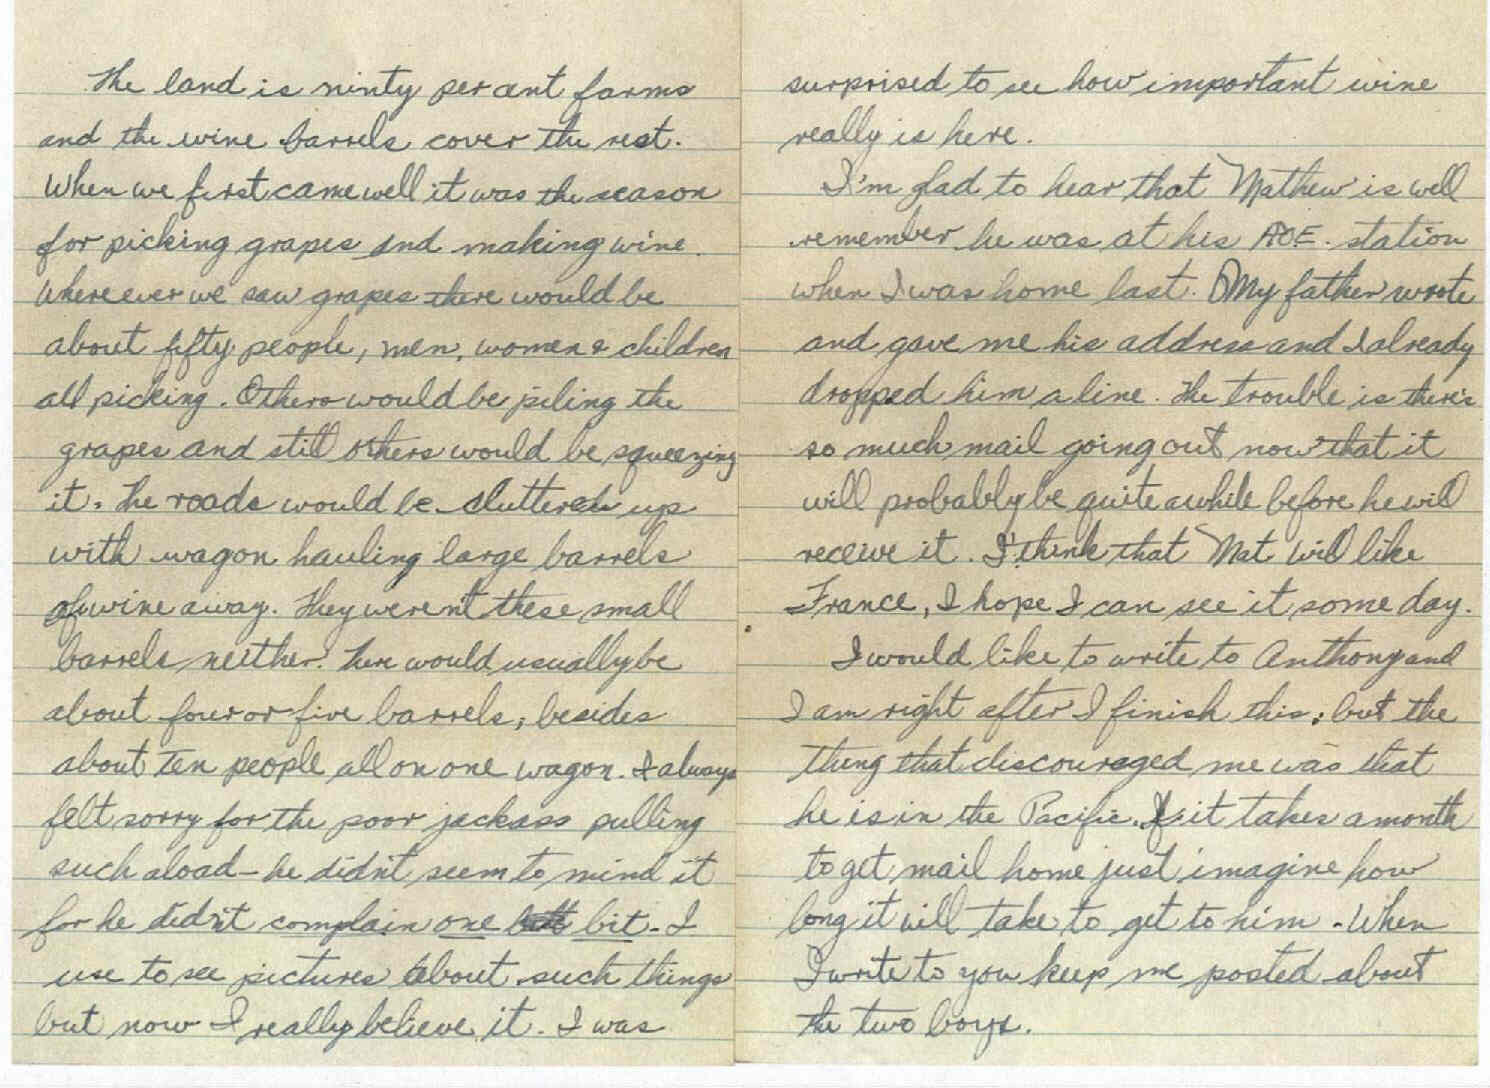 The land is ninty per cent farms
and the wine barrels cover the rest.
When we first came well it was the season
for picking grapes and making wine.
Where ever we saw grapes there would be
about fifty people, men, women & children
all picking. Others would be piling the
grapes and still others would be squeezing
it. The roads would be cluttered up
with wagon hauling large barrels
of wine away. They weren't these small
barrels neither. There would usually be
about four or five barrels, besides
about ten people all on one wagon. I always
felt sorry for the poor jackass pulling
such a load - he didn't seem to mind it
for he didn't complain one bit - I
use to see pictures about such things
but now I really believe it. I was
surprised to see how important wine
really is here.
I'm glad to hear that Mathew is well
remember he was at his P.O.E. station
when I was home last. My father wrote
and gave me his address and I already
dropped him a line. The trouble is there's
so much mail going out now that it
will probably be quite awhile before he will
receive it. I think that Mat will like
France, I hope I can see it some day.
I would like to write to Anthony and
I am right after I finish this; but the
thing that discouraged me was that
he is in the Pacific. If it takes a month
to get mail home just imagine how
long it will take to get to him. When
I write to you keep me posted about
the two boys.